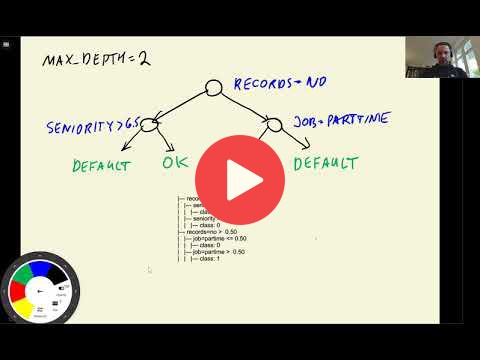 MAX_DEPTH=2
RECORDS=NO
SENIORITY>6.5
JOB=PARTTIME
DEFAULT OK DEFAULT
|--- records
| |--- seni
| | |--- class:
| |--- seniority >
| | |--- class: 0
|--- records=no > 0.50
| |--- job=partime <= 0.50
| | |--- class: 0
| |--- job=partime > 0.50
| | |--- class: 1